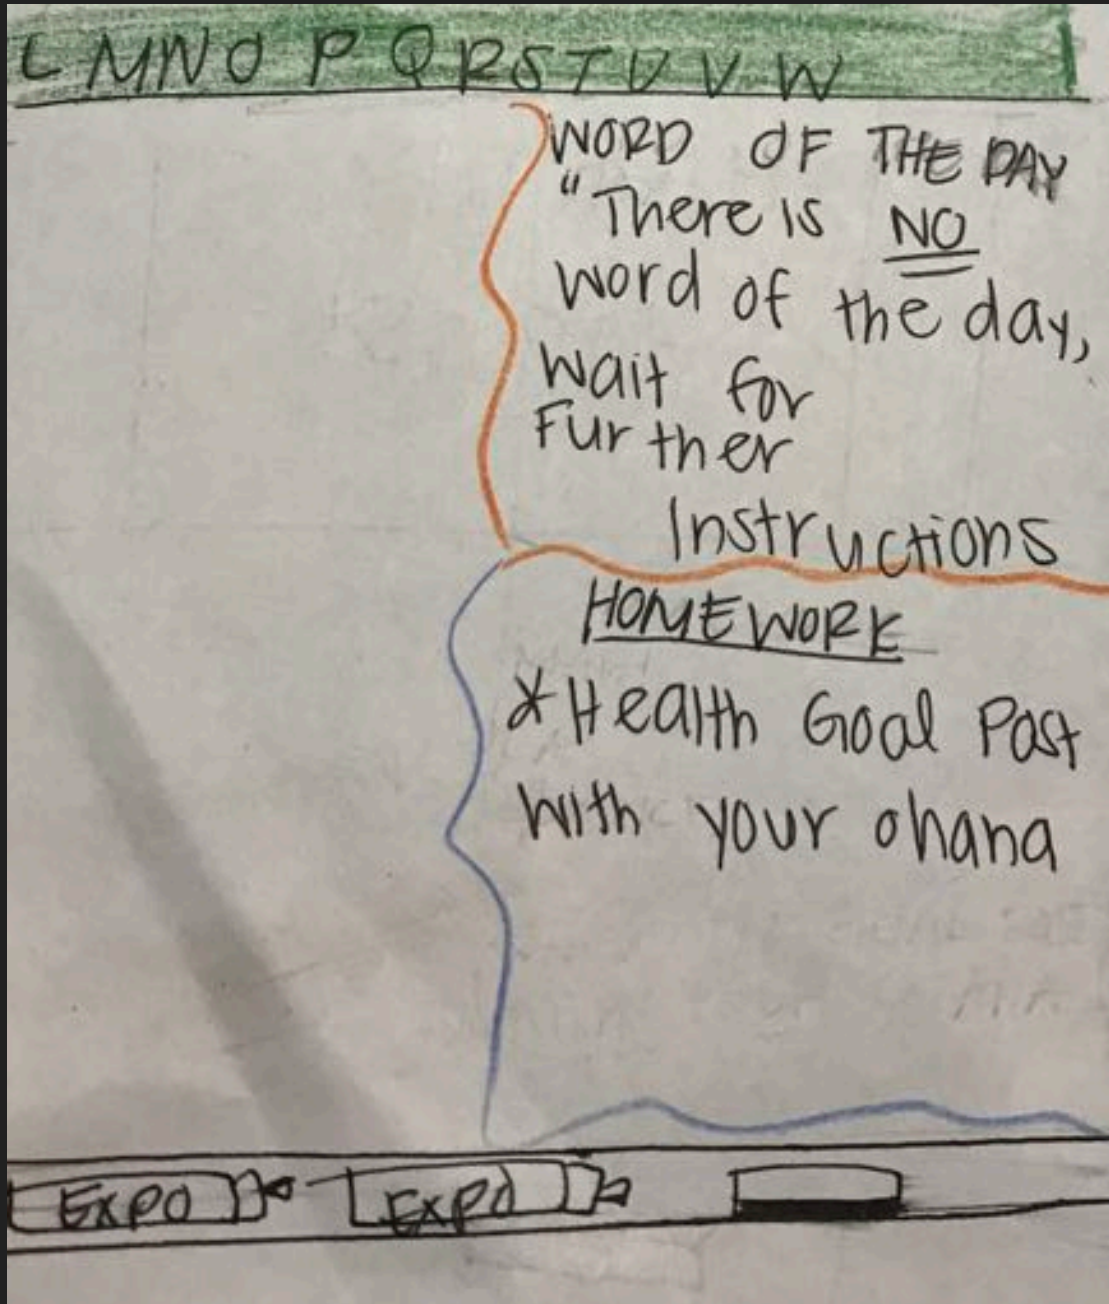 L MNO P QRSTUVW
WORD OF THE DAY
"There is NO
word of the day,
wait for
Further
Instructions
HOMEWORK
*Health Goal Post
with your ohana
Expo Expo